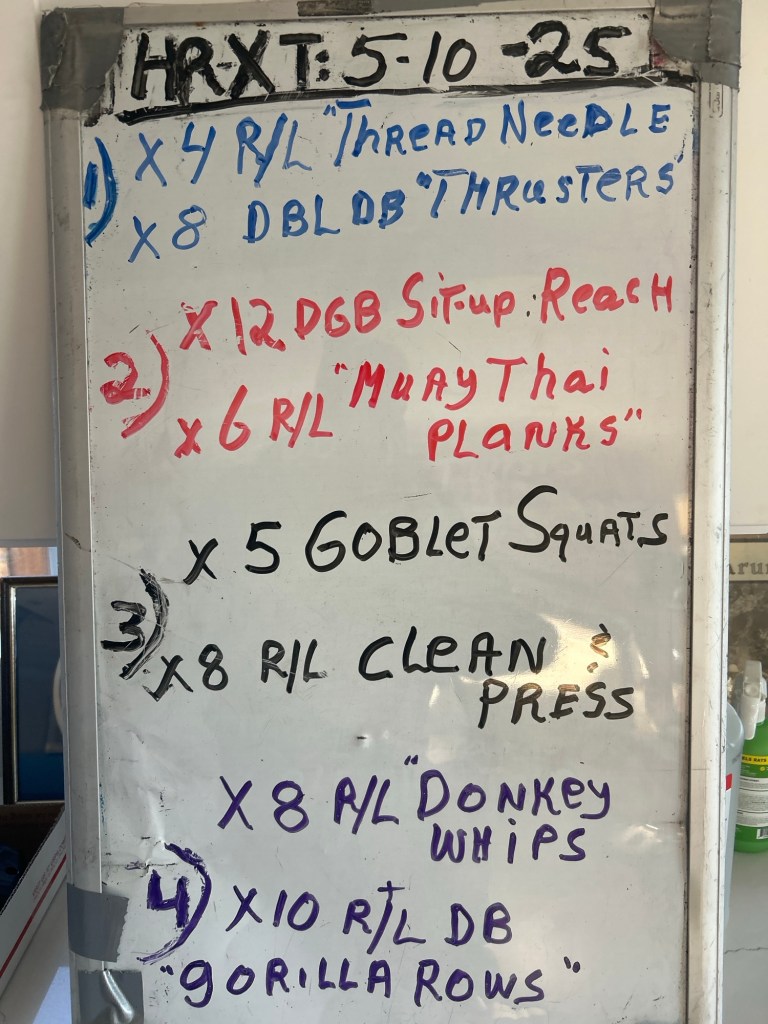 HR-XT: 5-10-25
1) X 4 R/L "THREAD NEEDLE
X 8 DBL DB "THRUSTERS"
2) X 12 DGB Sit-up: Reach
X 6 R/L "MUAY Thai
PLANKS"
3) X 5 GOBLET SQUATS
X 8 R/L CLEAN &
PRESS
4) X 8 R/L "DONKEY
WHIPS
X 10 R/L DB
"GORILLA ROWS"